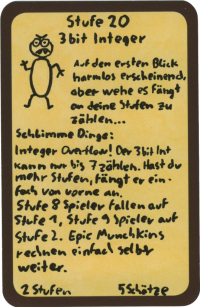 Stufe 20
3bit Integer
Auf den ersten Blick
harmlos erscheinend,
aber wehe es fängt
an deine Stufen zu
zählen...
Schlimme Dinge:
Integer Overflow! Der 3bit Int
kann nur bis 7 zählen. Hast du
mehr Stufen, fängt er ein-
fach von vorne an.
Stufe 8 Spieler fallen auf
Stufe 1, Stufe 9 Spieler auf
Stufe 2. Epic Munchkins
rechnen einfach selbst
weiter.
2 Stufen 5 Schätze